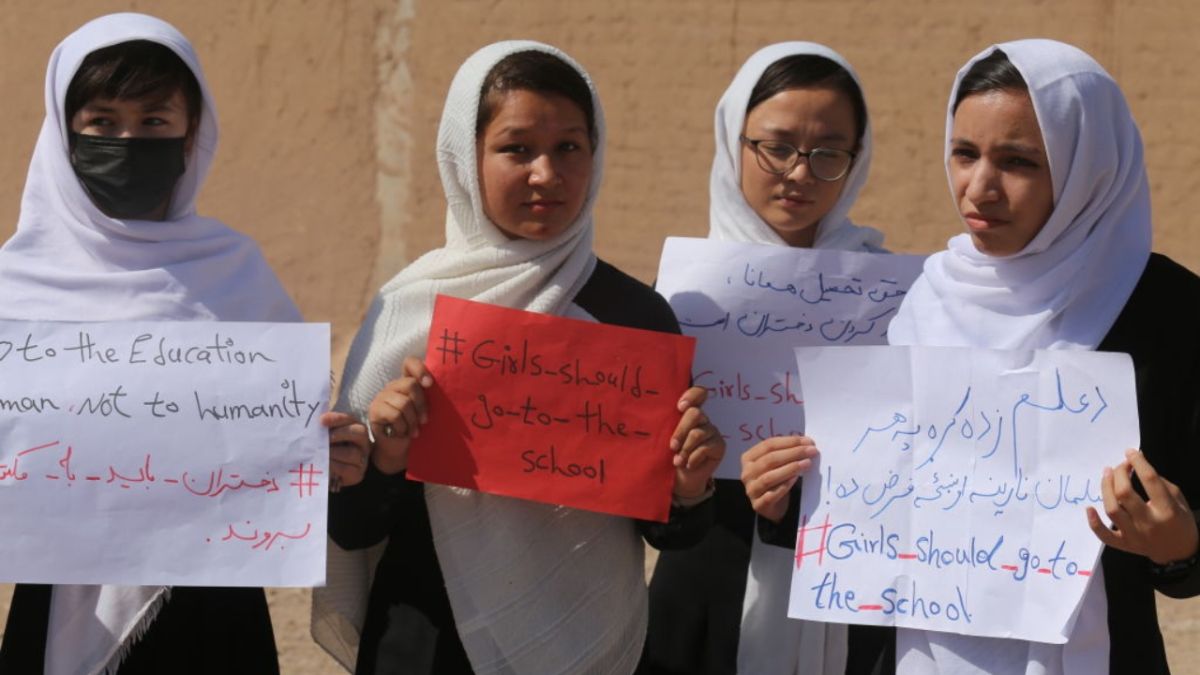 to the Education
man. Not to humanity
# دختران_باید_به_مکتب
بروند.
#Girls_should_
go_to_the_
school
حق تحصیل همانا،
کردن دختران است
Girls_sh
_scho
د علم زده کړه په هر
مسلمان نارینه او ښځه فرض ده!
#Girls_should_go_to_
the_school